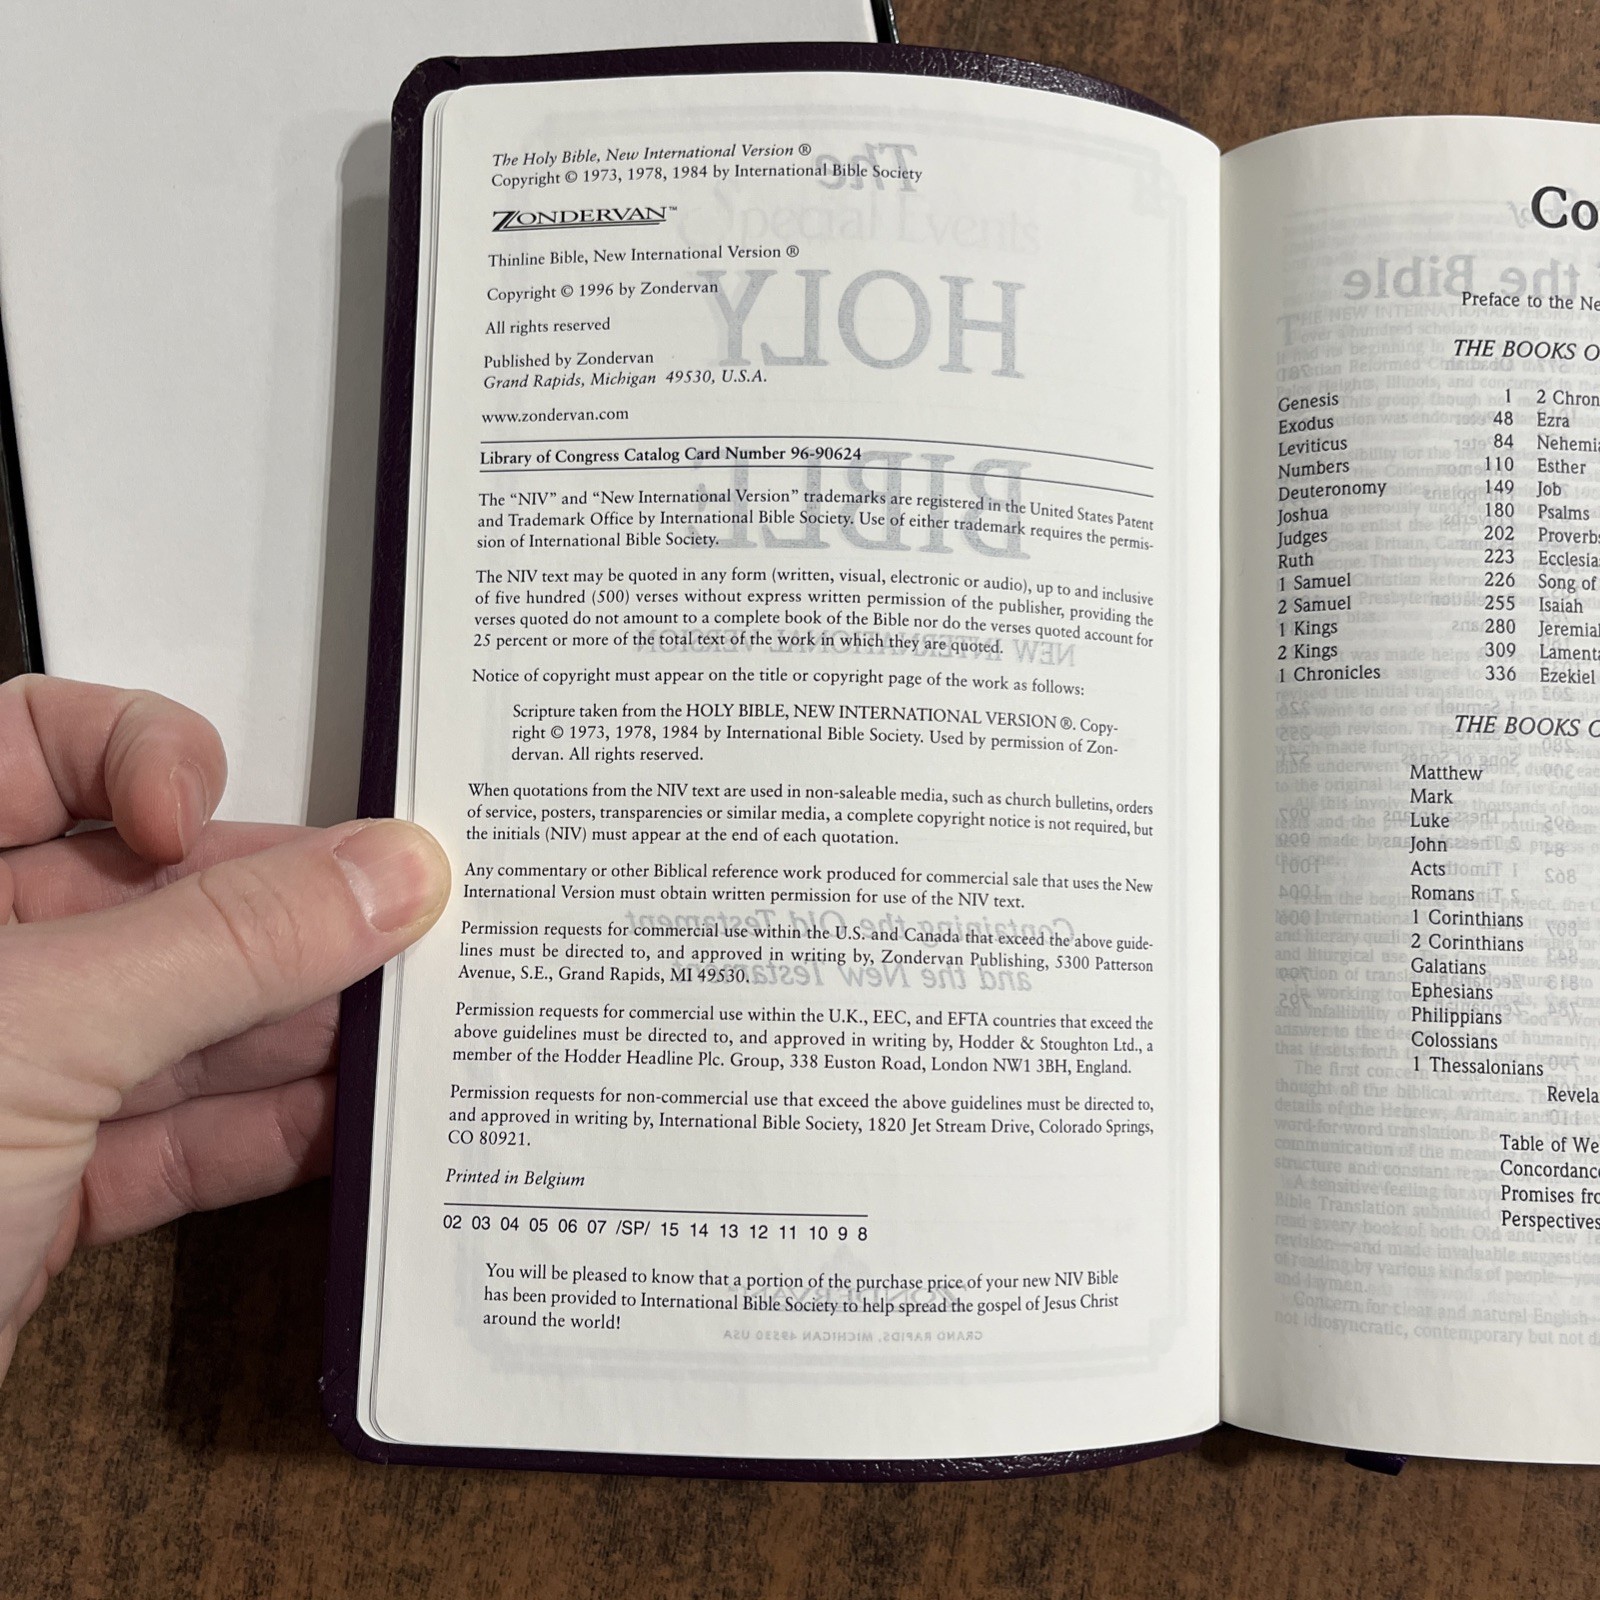 The Holy Bible, New International Version ®
Copyright © 1973, 1978, 1984 by International Bible Society
ZONDERVAN™
Thinline Bible, New International Version ®
Copyright © 1996 by Zondervan
All rights reserved
Published by Zondervan
Grand Rapids, Michigan 49530, U.S.A.
www.zondervan.com
Library of Congress Catalog Card Number 96-90624
The “NIV” and “New International Version” trademarks are registered in the United States Patent
and Trademark Office by International Bible Society. Use of either trademark requires the permis-
sion of International Bible Society.
The NIV text may be quoted in any form (written, visual, electronic or audio), up to and inclusive
of five hundred (500) verses without express written permission of the publisher, providing the
verses quoted do not amount to a complete book of the Bible nor do the verses quoted account for
25 percent or more of the total text of the work in which they are quoted.
Notice of copyright must appear on the title or copyright page of the work as follows:
Scripture taken from the HOLY BIBLE, NEW INTERNATIONAL VERSION ®. Copy-
right © 1973, 1978, 1984 by International Bible Society. Used by permission of Zon-
dervan. All rights reserved.
When quotations from the NIV text are used in non-saleable media, such as church bulletins, orders
of service, posters, transparencies or similar media, a complete copyright notice is not required, but
the initials (NIV) must appear at the end of each quotation.
Any commentary or other Biblical reference work produced for commercial sale that uses the New
International Version must obtain written permission for use of the NIV text.
Permission requests for commercial use within the U.S. and Canada that exceed the above guide-
lines must be directed to, and approved in writing by, Zondervan Publishing, 5300 Patterson
Avenue, S.E., Grand Rapids, MI 49530.
Permission requests for commercial use within the U.K., EEC, and EFTA countries that exceed the
above guidelines must be directed to, and approved in writing by, Hodder & Stoughton Ltd., a
member of the Hodder Headline Plc. Group, 338 Euston Road, London NW1 3BH, England.
Permission requests for non-commercial use that exceed the above guidelines must be directed to,
and approved in writing by, International Bible Society, 1820 Jet Stream Drive, Colorado Springs,
CO 80921.
Printed in Belgium
02 03 04 05 06 07 /SP/ 15 14 13 12 11 10 9 8
You will be pleased to know that a portion of the purchase price of your new NIV Bible
has been provided to International Bible Society to help spread the gospel of Jesus Christ
around the world!
Co
Preface to the Ne
THE BOOKS O
Genesis 1 2 Chron
Exodus 48 Ezra
Leviticus 84 Nehemia
Numbers 110 Esther
Deuteronomy 149 Job
Joshua 180 Psalms
Judges 202 Proverbs
Ruth 223 Ecclesia
1 Samuel 226 Song of
2 Samuel 255 Isaiah
1 Kings 280 Jeremia
2 Kings 309 Lamenta
1 Chronicles 336 Ezekiel
THE BOOKS O
Matthew
Mark
Luke
John
Acts
Romans
1 Corinthians
2 Corinthians
Galatians
Ephesians
Philippians
Colossians
1 Thessalonians
Revela
Table of We
Concordance
Promises fro
Perspectives